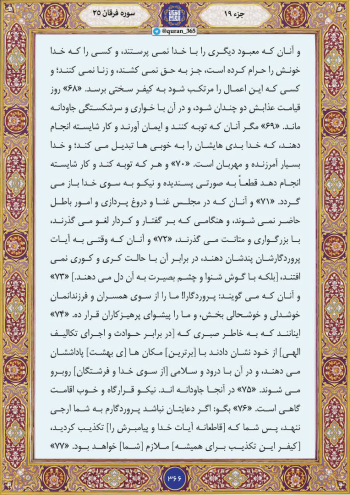 جزء ۱۹
@quran_365
سوره فرقان ۲۵
و آنان که معبود دیگری را با خدا نمی پرستند، و کسی را که خدا
خونش را حرام کرده است، جز به حق نمی کشند، و زنا نمی کنند؛ و
کسی که این اعمال را مرتکب شود به کیفر سختی برسد. «۶۸» روز
قیامت عذابش دو چندان شود، و در آن با خواری و سرشکستگی جاودانه
ماند. «۶۹» مگر آنان که توبه کنند و ایمان آورند و کار شایسته انجام
دهند، که خدا بدی هایشان را به خوبی ها تبدیل می کند؛ و خدا
بسیار آمرزنده و مهربان است. «۷۰» و هر که توبه کند و کار شایسته
انجام دهد قطعاً به صورتی پسندیده و نیکو به سوی خدا باز می
گردد. «۷۱» و آنان که در مجلس غنا و دروغ پردازی و امور باطل
حاضر نمی شوند، و هنگامی که بر گفتار و کردار لغو می گذرند،
با بزرگواری و متانت می گذرند، «۷۲» و آنان که وقتی به آیات
پروردگارشان پندشان دهند، در برابر آن با حالت کری و کوری نمی
افتند، [بلکه با گوش شنوا و چشم بصیرت به آن دل می دهند.] «۷۳»
و آنان که می گویند: پروردگارا! ما را از سوی همسران و فرزندانمان
خوشدلی و خوشحالی بخش، و ما را پیشوای پرهیزکاران قرار ده. «۷۴»
اینانند که به خاطر صبری که [در برابر حوادث و اجرای تکالیف
الهی] از خود نشان دادند با [برترین] مکان ها [ی بهشت] پاداششان
می دهند، و در آن با درود و سلامی [از سوی خدا و فرشتگان] روبرو
می شوند. «۷۵» در آنجا جاودانه اند. نیکو قرارگاه و خوب اقامت
گاهی است. «۷۶» بگو: اگر دعایتان نباشد پروردگارم به شما ارجی
ننهد، پس شما که [قاطعانه آیات خدا و پیامبرش را] تکذیب کردید،
[کیفر این تکذیب برای همیشه] ملازم [شما] خواهد بود. «۷۷»
۳۶۶